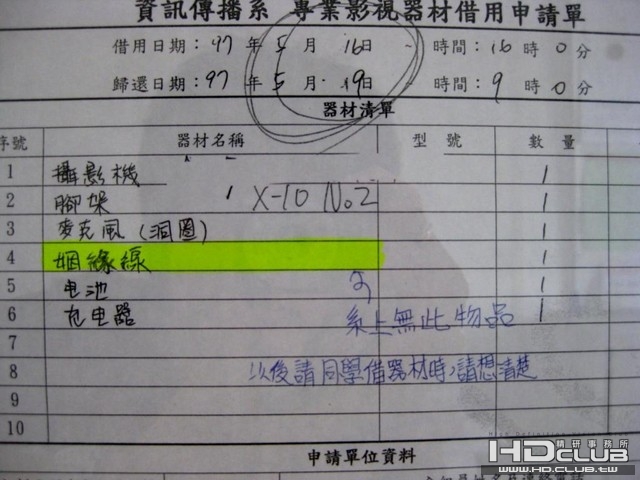 資訊傳播系 專業影視器材借用申請單
借用日期：97 年 5 月 16日 ~ 時間：16 時 0 分
歸還日期：97 年 5 月 19日 ~ 時間：9 時 0 分
器材清單
序號 器材名稱 型 號 數 量
1 攝影機 1
2 腳架 X-10 No2 1
3 麥克風 (洞圈) 1
4 姻緣線 1
5 电池 1
6 充电器 系上無此物品 1
7
8 以後請同學借器材時，請想清楚
9
10
申請單位資料
HDCLUB 精研事務所
WWW.HD.CLUB.TW